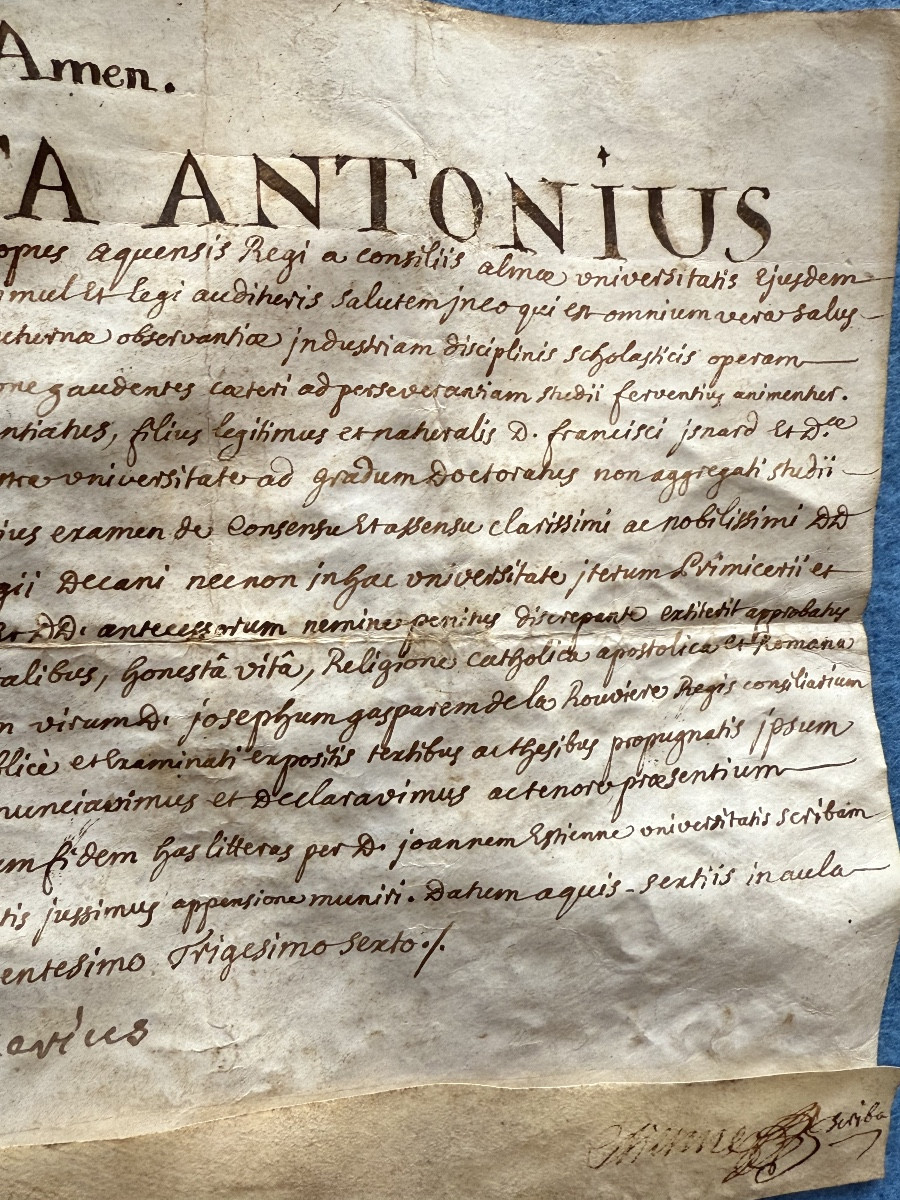 Amen.
TA ANTONIUS
opus aquensis Regi a consiliis almæ universitatis ejusdem
imul Et legi audituris salutem jn eo qui est omnium vera salus
uturnæ observantiæ jndustriam disciplinis scholasticis operam
one gaudentes cæteri ad perseverantiam studii ferventius animentur.
ntiatus, filius legitimus et naturalis D. francisci jsnard Et D.æ
tra universitate ad gradum Doctoratus non aggregati studii
ius examen de Consensu Et assensu clarissimi ac nobilissimi DD
gii Decani necnon jn hac universitate jterum Primicerii et
Et DD. antecessorum nemine penitus discrepante extiterit approbatus
alibus, honestâ vitâ, Religione catholica apostolica et Romana
m virum D. josephum gasparem de la Rouviere Regis consiliarium
blicè et Examinati expositis textibus ac thesibus propugnatis jpsum
nunciavimus et Declaravimus ac tenore præsentium
um fidem has litteras per D. joannem Estienne universitatis scribam
tis jussimus appensione muniri. Datum aquis-sextiis in aula
entesimo Trigesimo sexto ./.
arius
Estienne scriba